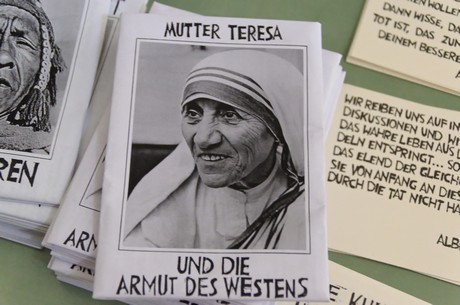 MUTTER TERESA
UND DIE
ARMUT DES WESTENS
REN
WOLLEN
DANN WISSE, DA
TOT IST, DAS ZUN
DEINEM BESSERE
WIR REIBEN UNS AUF IN
DISKUSSIONEN UND WI
DAS WAHRE LEBEN AUS
DELN ENTSPRINGT... SO
DAS ELEND DER GLEICH
SIE VON ANFANG AN DIES
DURCH DIE TAT NICHT HA
ALB